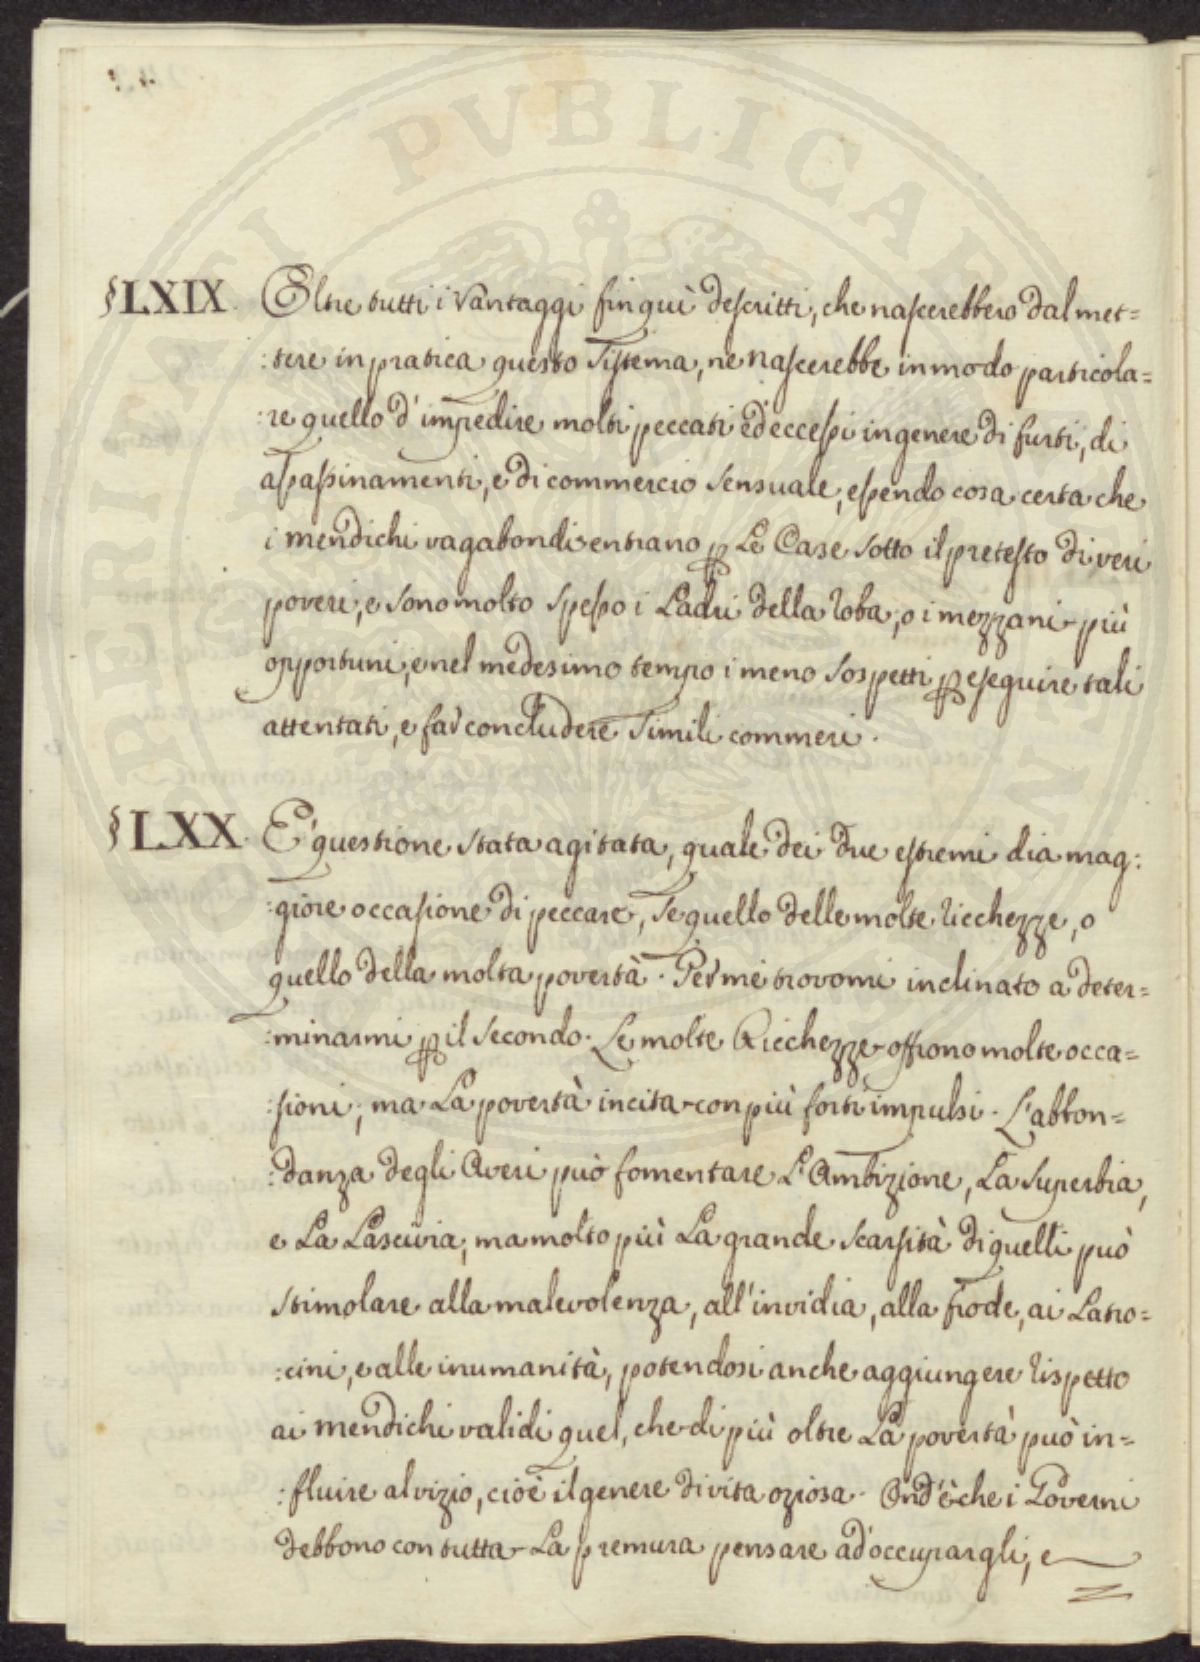 §LXIX. Oltre tutti i Vantaggi fin quì descritti, che nascerebbero dal met=
:tere in pratica questo Sistema, ne nascerebbe in modo particola=
:re quello d'impedire molti peccati ed eccessi in genere di furti, di
assassinamenti, e di commercio sensuale, essendo cosa certa che
i mendichi vagabondi entrano ꝑ Le Case sotto il pretesto di veri
poveri, e sono molto spesso i Ladri della roba, o i mezzani più
opportuni, e nel medesimo tempo i meno sospetti ꝑ eseguire tali
attentati, e far concludere simili commerci.
§LXX. E' questione stata agitata, quale dei due estremi dia mag:
:giore occasione di peccare, se quello delle molte ricchezze, o
quello della molta povertà. Per me trovomi inclinato a deter=
:minarmi ꝑ il secondo. Le molte Ricchezze offrono molte occa=
:sioni, ma La povertà incita con più forti impulsi. L'abbon=
:danza degli Averi può fomentare L'Ambizione, La Superbia,
e La Lascivia, ma molto più La grande scarsità di quelli può
stimolare alla malevolenza, all'invidia, alla frode, ai Latro=
:cini, e alle inumanità, potendosi anche aggiungere rispetto
ai mendichi validi quel, che di più oltre La povertà può in=
:fluire al vizio, cioè il genere di vita oziosa. Ond'è che i Governi
debbono con tutta La premura pensare ad occupargli, e
PERITATI PVBLICAE